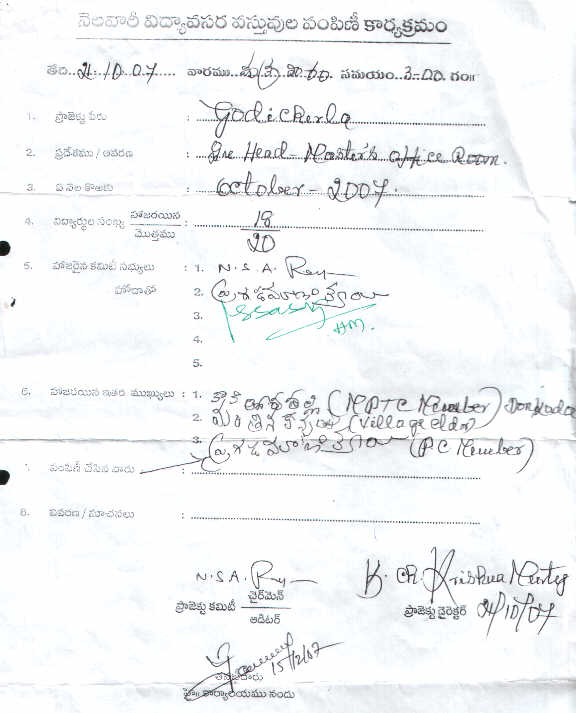 నెలవారీ విద్యావసర వస్తువుల పంపిణీ కార్యక్రమం
తేది 21.10.07 వారము సమయం 3-00 గం॥
1. ప్రాజెక్టు పేరు : Godicherla
2. ప్రదేశము / ఆవరణ : Head Master's office Room.
3. ఏ నెల కొఱకు : October - 2007.
4. విద్యార్థుల సంఖ్య హాజరయిన / మొత్తము : 18 / 20
5. హాజరైన కమిటీ సభ్యులు : 1. N.S.A.
హోదాతో 2.
3.
HM.
4.
5.
6. హాజరయిన ఇతర ముఖ్యులు : 1. (MPTC Member)
2. (Village elder)
3. (PC Member)
పంపిణీ చేసిన వారు :
8. వివరణ / సూచనలు :
N.S.A.
K. Ch. Krishna Murty
ప్రాజెక్టు కమిటీ చైర్‌మెన్ / ఆడిటర్
ప్రాజెక్టు డైరెక్టర్ 21/10/07
15/12/07
కార్యాలయము నందు